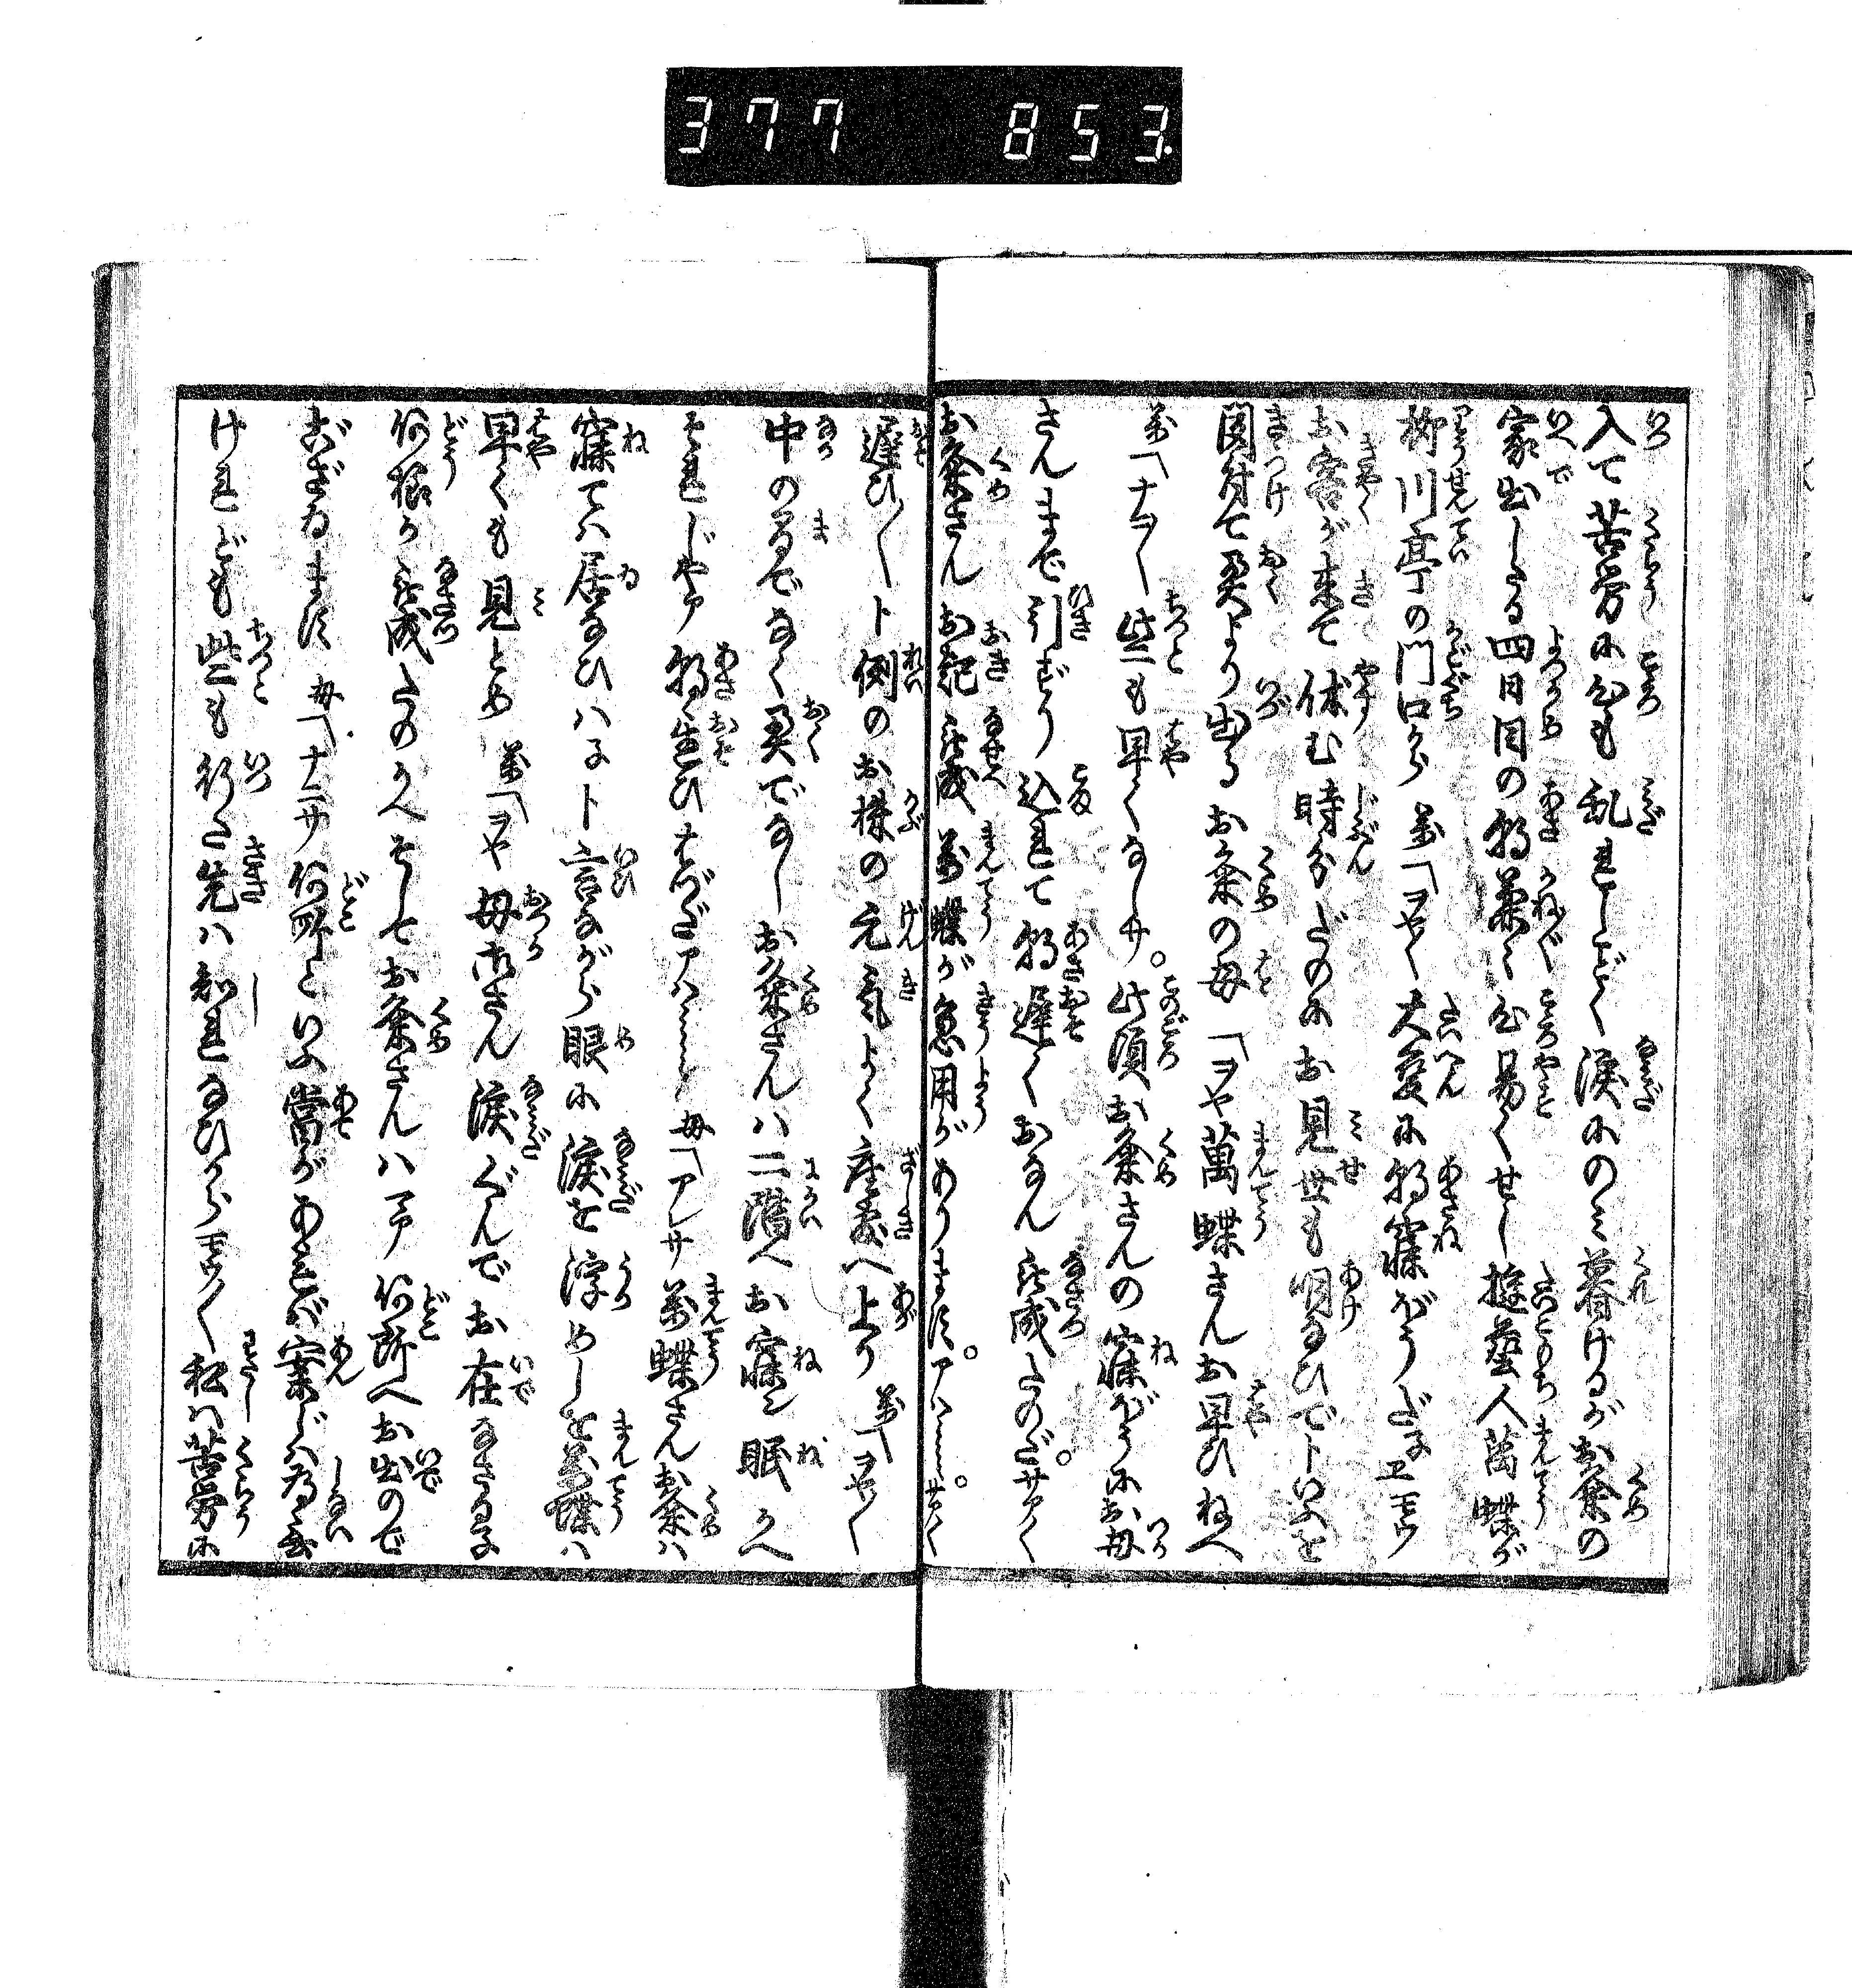 377 853
入て苦労に心も乱れしごとく涙にのミ暮けるがお粂の
家出しより四日目の朝兼〻心易くせし遊藝人萬蝶が
柳川亭の門口から 萬「ヲヤ〳〵大変に朝寐ぼうだ子ヱモウ
お客が来て休む時分だのにお見世も明ないでトいふを
聞付て奥より出るお粂の母「ヲヤ萬蝶さんお早ひねへ
萬「ナアニ些も早くなしサ。此頃お粂さんの寐ぼうにお母
さんまで引ずり込れて朝遅くおなん被成たのだ。サア〳〵
お粂さんお起被成萬蝶が急用がありま洋。アハヽヽヽ。サア〳〵
遅ひ〳〵ト例のお株の元氣よく座敷へ上り 萬「ヲヤ〳〵
中の間でなく奥でなしお粂さんハ二階へお寐〻眠かへ
それじやア朝遅ひはづだアハヽヽヽ 母「アレサ萬蝶さんお粂ハ
寐てハ居ないハ子ト言ながら眼に涙を浮めしを萬蝶ハ
早くも見とめ 萬「ヲヤ母御さん涙ぐんでお在なさる子
何様か被成たのかへそしてお粂さんハマア何所へお出ので
ござゐま洋 母「ナニサ何所といふ當があれバ案じハ為ない
けれども些も行た先ハ知れないからモウ〳〵私ハ苦労に